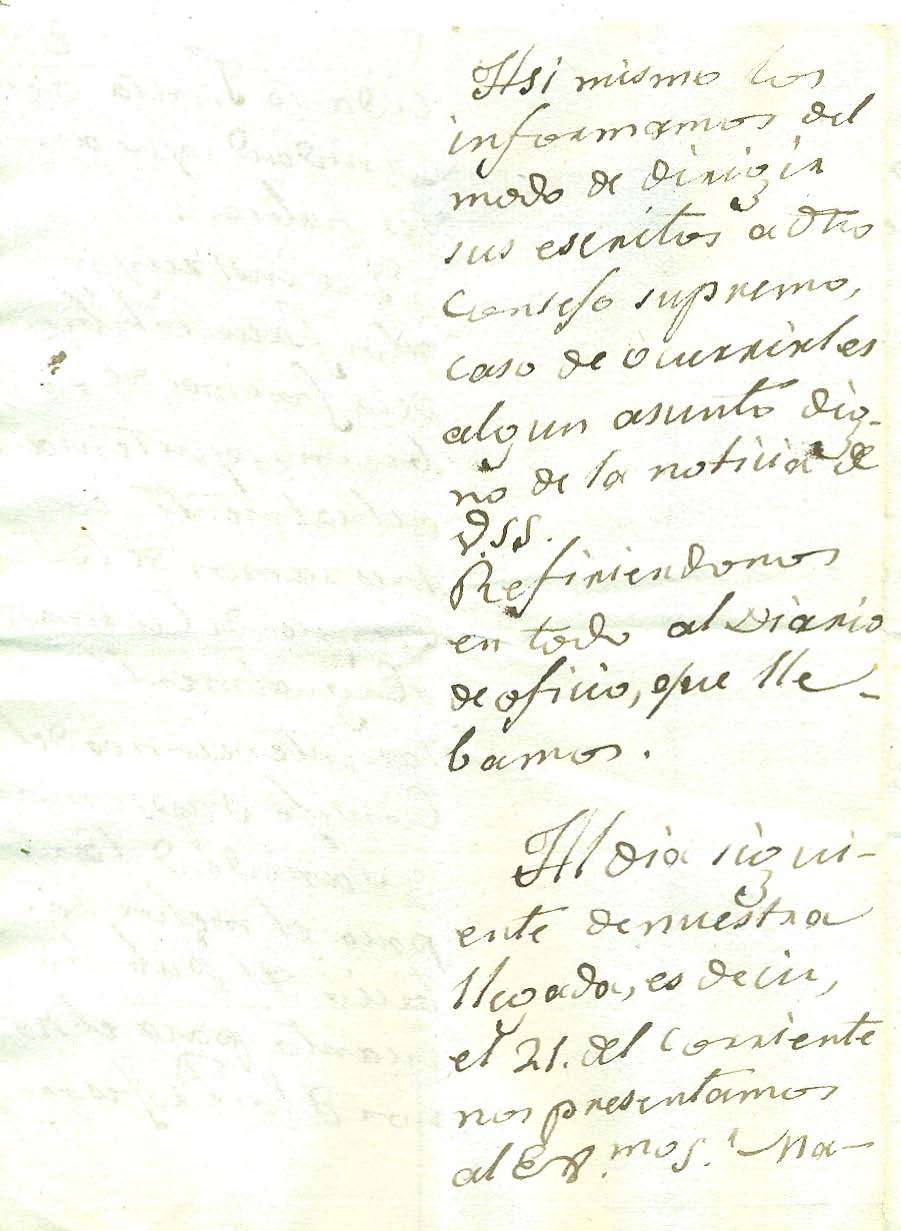 Asi mismo los
informamos del
modo de dirigir
sus escritos a dho
Consejo supremo,
caso de ocurrirles
algun asunto dig-
no de la noticia de
V.SS.
Refiriendonos
en todo al Diario
de oficio, que lle-
bamos.
Al dia sigui-
ente de nuestra
llegada, es decir,
el 21. del corriente
nos presentamos
al Ex.mo S.r Ma-